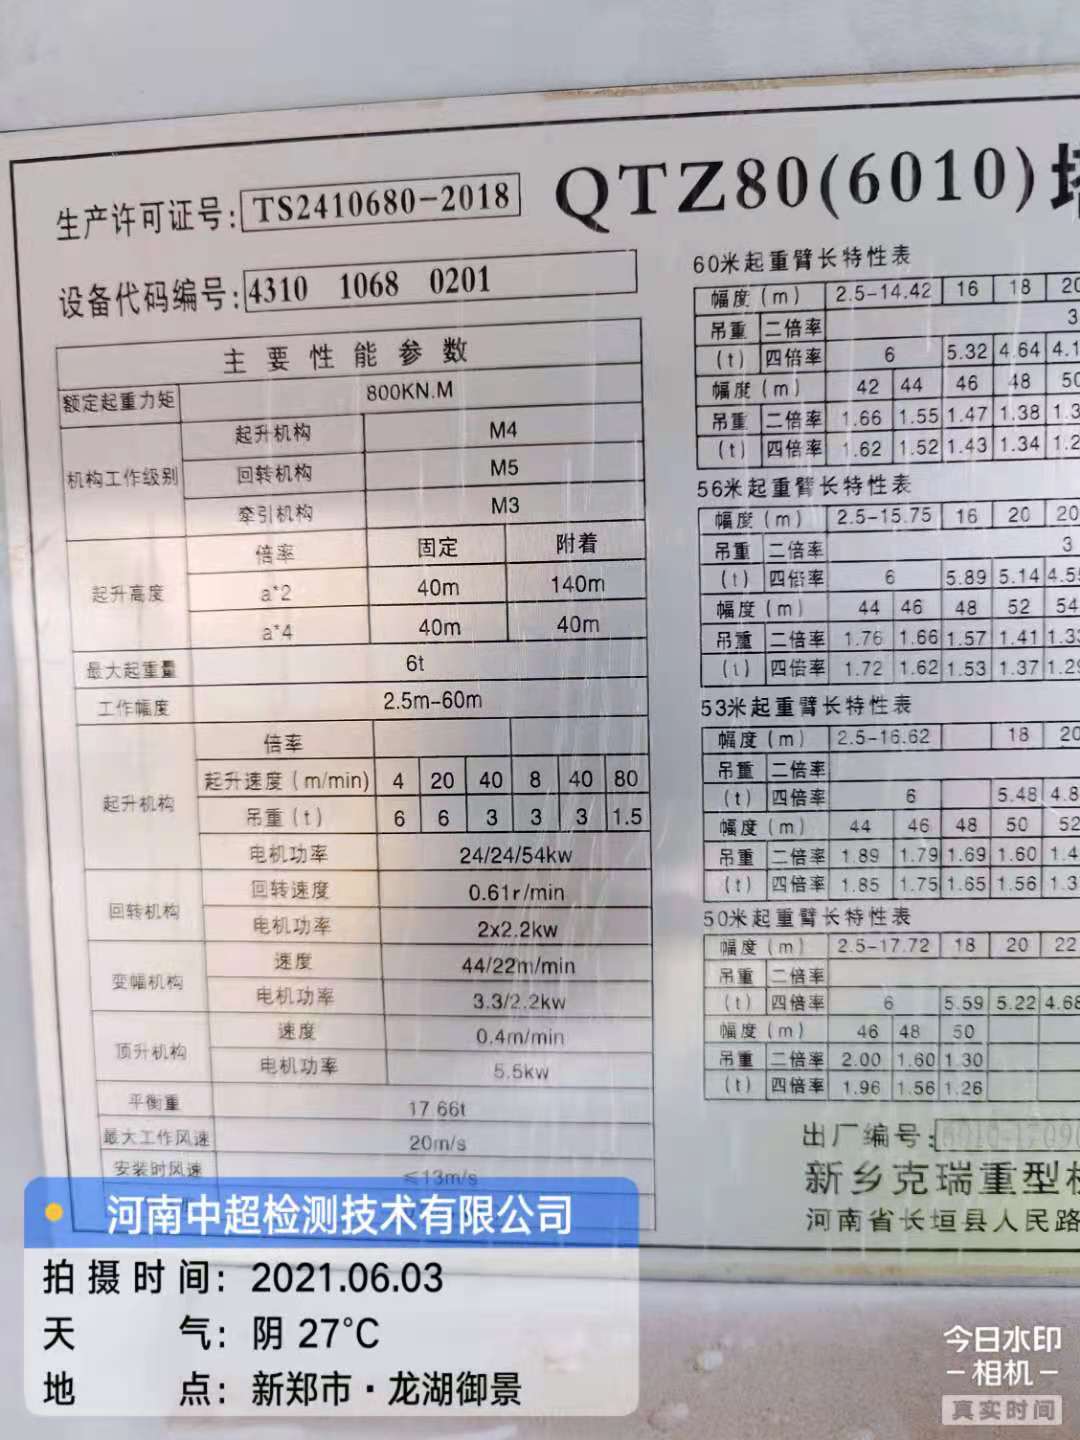 QTZ80(6010)
生产许可证号: TS2410680-2018
设备代码编号: 4310 1068 0201
主要性能参数
额定起重力矩 800KN.M
机构工作级别 起升机构 M4
回转机构 M5
牵引机构 M3
起升高度 倍率 固定 附着
a*2 40m 140m
a*4 40m 40m
最大起重量 6t
工作幅度 2.5m-60m
起升机构 倍率
起升速度(m/min) 4 20 40 8 40 80
吊重(t) 6 6 3 3 3 1.5
电机功率 24/24/54kw
回转机构 回转速度 0.61r/min
电机功率 2x2.2kw
变幅机构 速度 44/22m/min
电机功率 3.3/2.2kw
顶升机构 速度 0.4m/min
电机功率 5.5kw
平衡重 17.66t
最大工作风速 20m/s
安装时风速 ≤13m/s
60米起重臂长特性表
幅度(m) 2.5-14.42 16 18 20
吊重 二倍率 3
(t) 四倍率 6 5.32 4.64 4.1
幅度(m) 42 44 46 48 50
吊重 二倍率 1.66 1.55 1.47 1.38 1.3
(t) 四倍率 1.62 1.52 1.43 1.34 1.2
56米起重臂长特性表
幅度(m) 2.5-15.75 16 20 20
吊重 二倍率 3
(t) 四倍率 6 5.89 5.14 4.55
幅度(m) 44 46 48 52 54
吊重 二倍率 1.76 1.66 1.57 1.41 1.33
(t) 四倍率 1.72 1.62 1.53 1.37 1.29
53米起重臂长特性表
幅度(m) 2.5-16.62 18 20
吊重 二倍率
(t) 四倍率 6 5.48 4.8
幅度(m) 44 46 48 50 52
吊重 二倍率 1.89 1.79 1.69 1.60 1.4
(t) 四倍率 1.85 1.75 1.65 1.56 1.3
50米起重臂长特性表
幅度(m) 2.5-17.72 18 20 22
吊重 二倍率
(t) 四倍率 6 5.59 5.22 4.68
幅度(m) 46 48 50
吊重 二倍率 2.00 1.60 1.30
(t) 四倍率 1.96 1.56 1.26
出厂编号:
新乡克瑞重型
河南省长垣县人民路
河南中超检测技术有限公司
拍摄时间: 2021.06.03
天气: 阴 27℃
地点: 新郑市·龙湖御景
今日水印
-相机-
真实时间